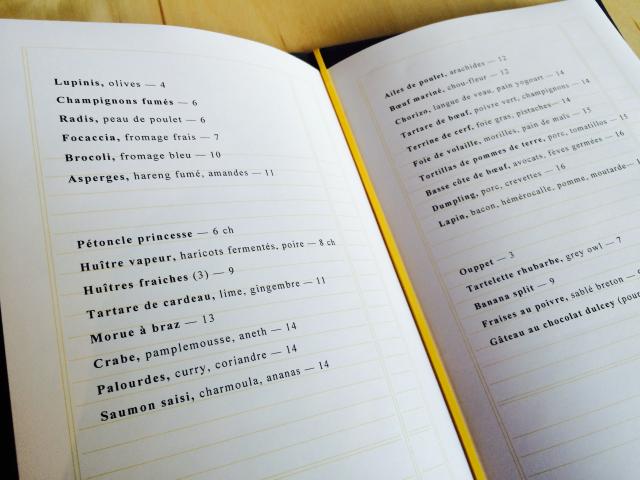 Lupinis, olives — 4
Champignons fumés — 6
Radis, peau de poulet — 6
Focaccia, fromage frais — 7
Brocoli, fromage bleu — 10
Asperges, hareng fumé, amandes — 11
Pétoncle princesse — 6 ch
Huître vapeur, haricots fermentés, poire — 8 ch
Huîtres fraiches (3) — 9
Tartare de cardeau, lime, gingembre — 11
Morue à braz — 13
Crabe, pamplemousse, aneth — 14
Palourdes, curry, coriandre — 14
Saumon saisi, charmoula, ananas — 14
Ailes de poulet, arachides — 12
Bœuf mariné, chou-fleur — 12
Chorizo, langue de veau, pain yogourt — 14
Tartare de bœuf, poivre vert, champignons — 14
Terrine de cerf, foie gras, pistaches — 14
Foie de volaille, morilles, pain de maïs — 15
Tortillas de pommes de terre, porc, tomatillos — 15
Basse côte de bœuf, avocats, fèves germées — 16
Dumpling, porc, crevettes — 16
Lapin, bacon, hémérocalle, pomme, moutarde —
Ouppet — 3
Tartelette rhubarbe, grey owl — 7
Banana split — 9
Fraises au poivre, sablé breton —
Gâteau au chocolat dulcey (pour